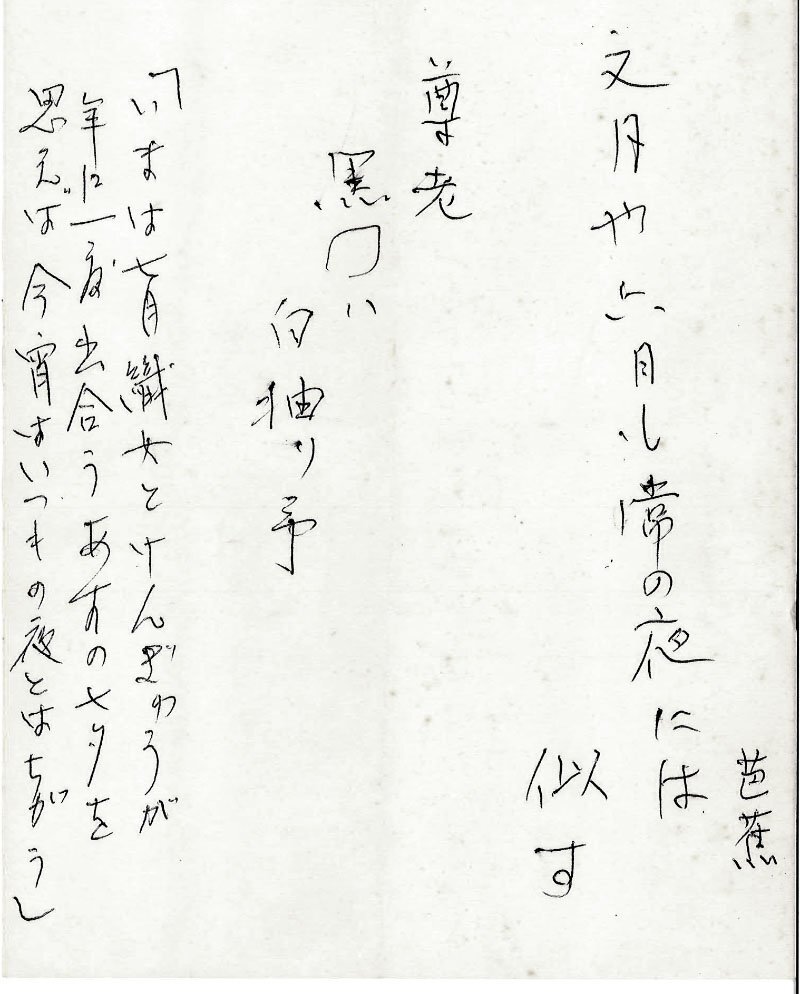 芭蕉
文月や六月も常の夜には
似す
尊老
黒
白
「いまは七月織女とけんぎゅうが
年に一度出合うあすの七夕を
思えば今宵はいつもの夜とはちがう」